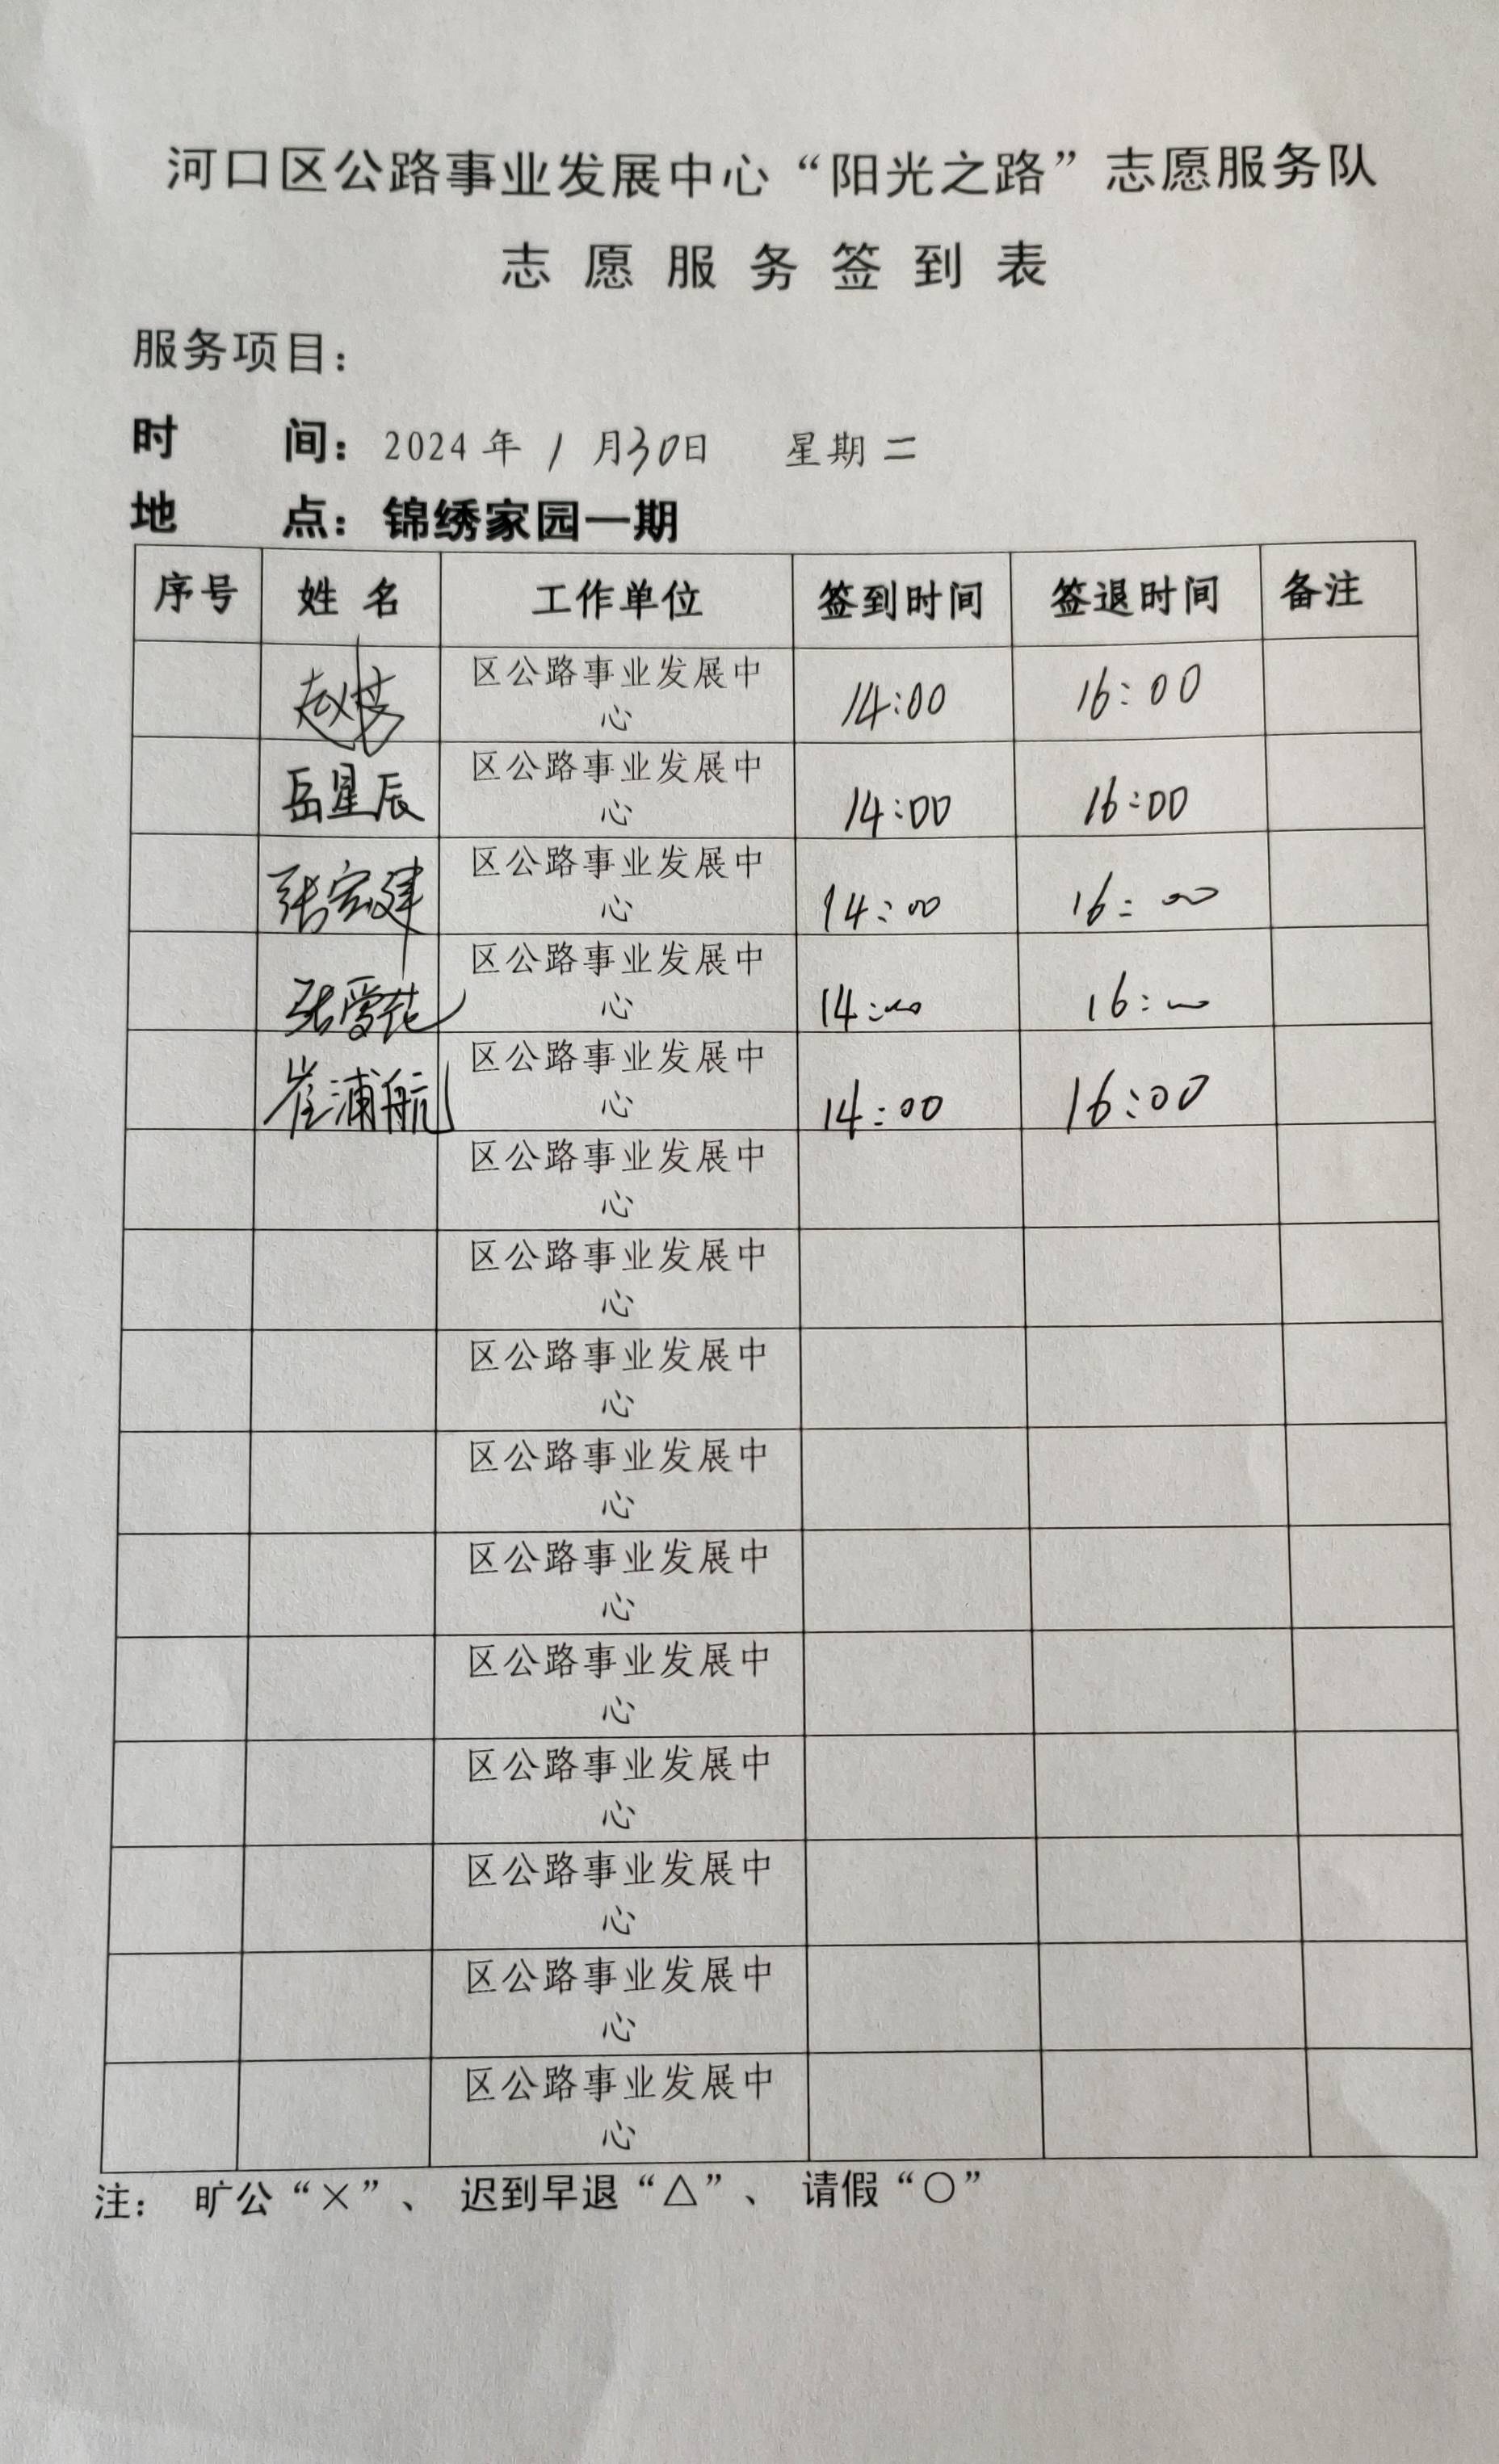 河口区公路事业发展中心“阳光之路”志愿服务队
志愿服务签到表
服务项目：
时 间：2024年 1 月30日 星期二
地 点：锦绣家园一期
序号 姓名 工作单位 签到时间 签退时间 备注
赵芳 区公路事业发展中 14:00 16:00
心
岳星辰 区公路事业发展中 14:00 16:00
心
张宏建 区公路事业发展中 14:00 16:00
心
张雪花 区公路事业发展中 14:00 16:00
心
崔浦航 区公路事业发展中 14:00 16:00
心
区公路事业发展中
心
区公路事业发展中
心
区公路事业发展中
心
区公路事业发展中
心
区公路事业发展中
心
区公路事业发展中
心
区公路事业发展中
心
区公路事业发展中
心
区公路事业发展中
心
区公路事业发展中
心
注： 旷公“×”、 迟到早退“△”、 请假“○”